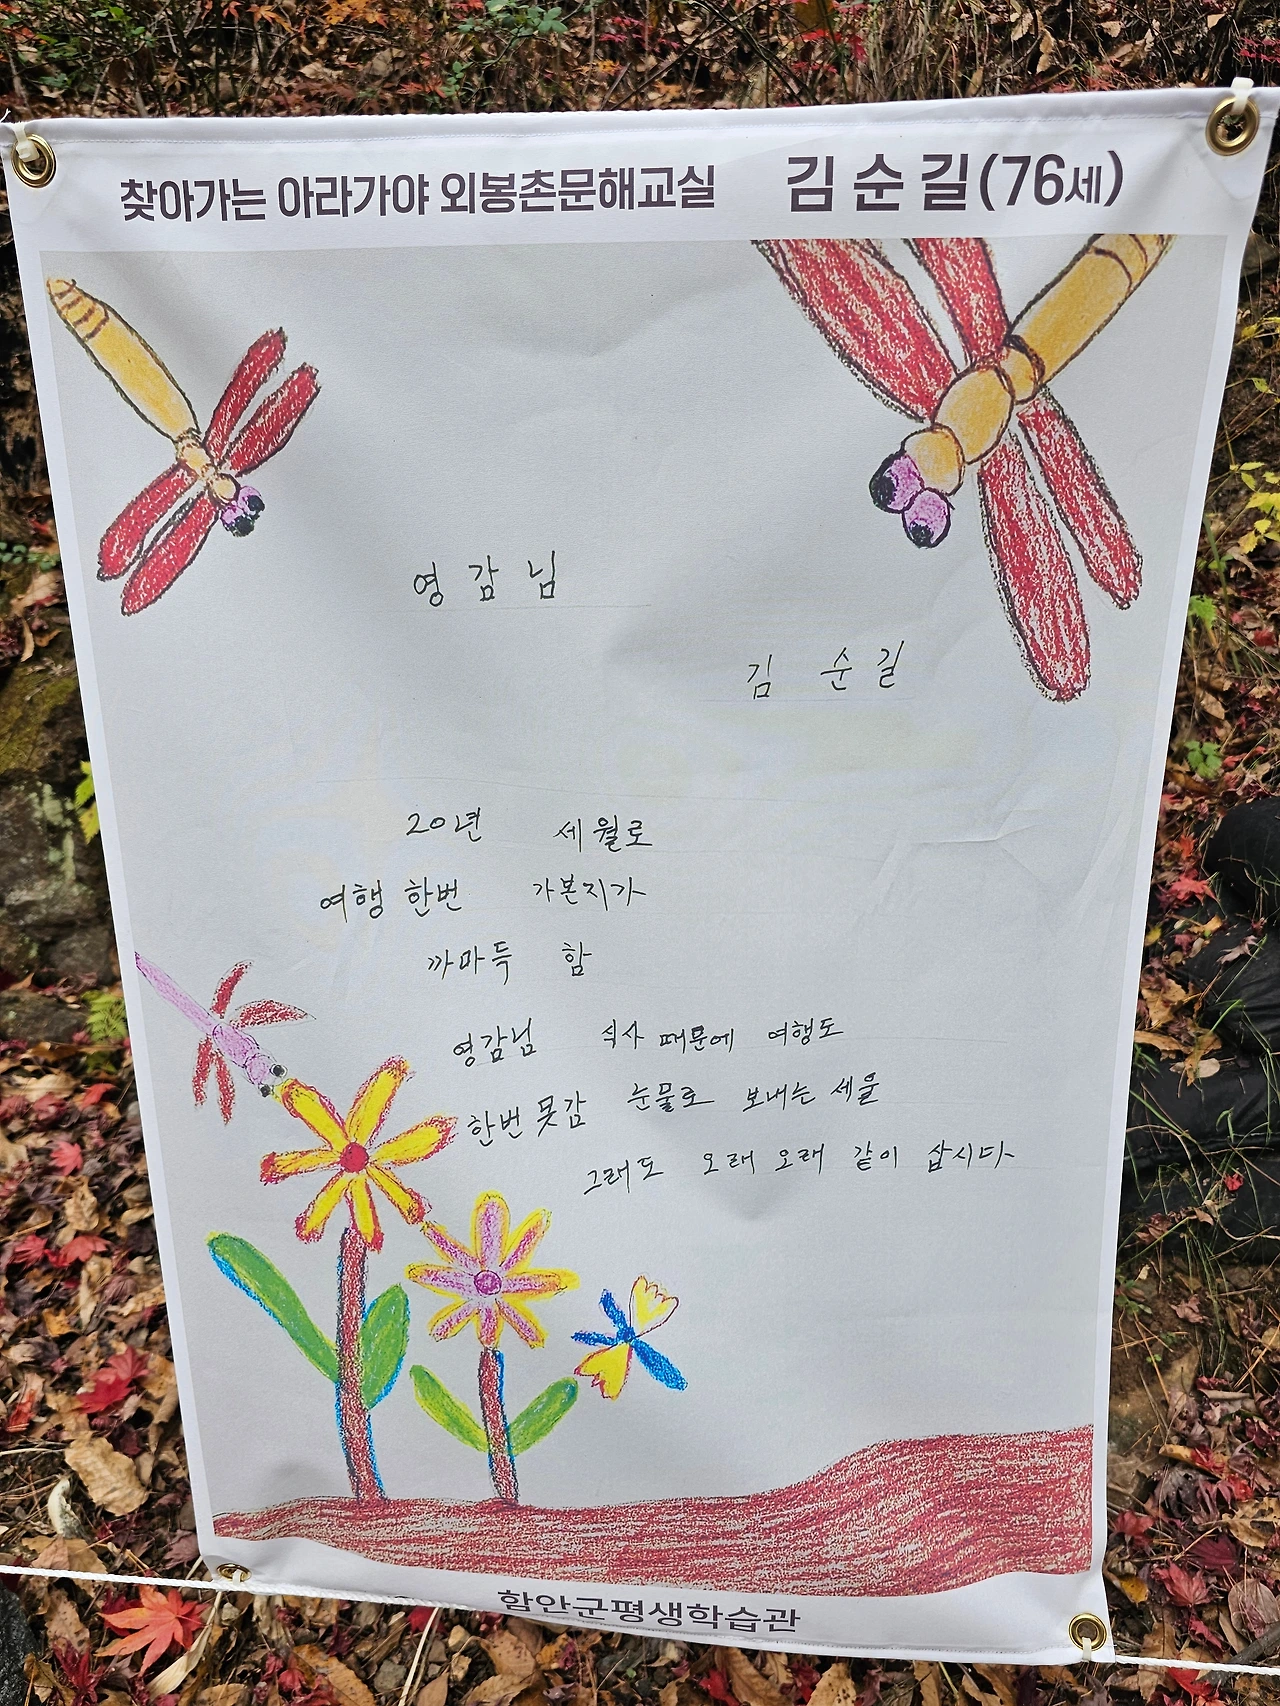 찾아가는 아라가야 외봉촌문해교실 김순길(76세)
영감님
김 순길
20년 세월로
여행 한번 가본지가
까마득 함
영감님 식사 때문에 여행도
한번 못감 눈물로 보내는 세울
그래도 오래 오래 같이 삽시다
함안군평생학습관